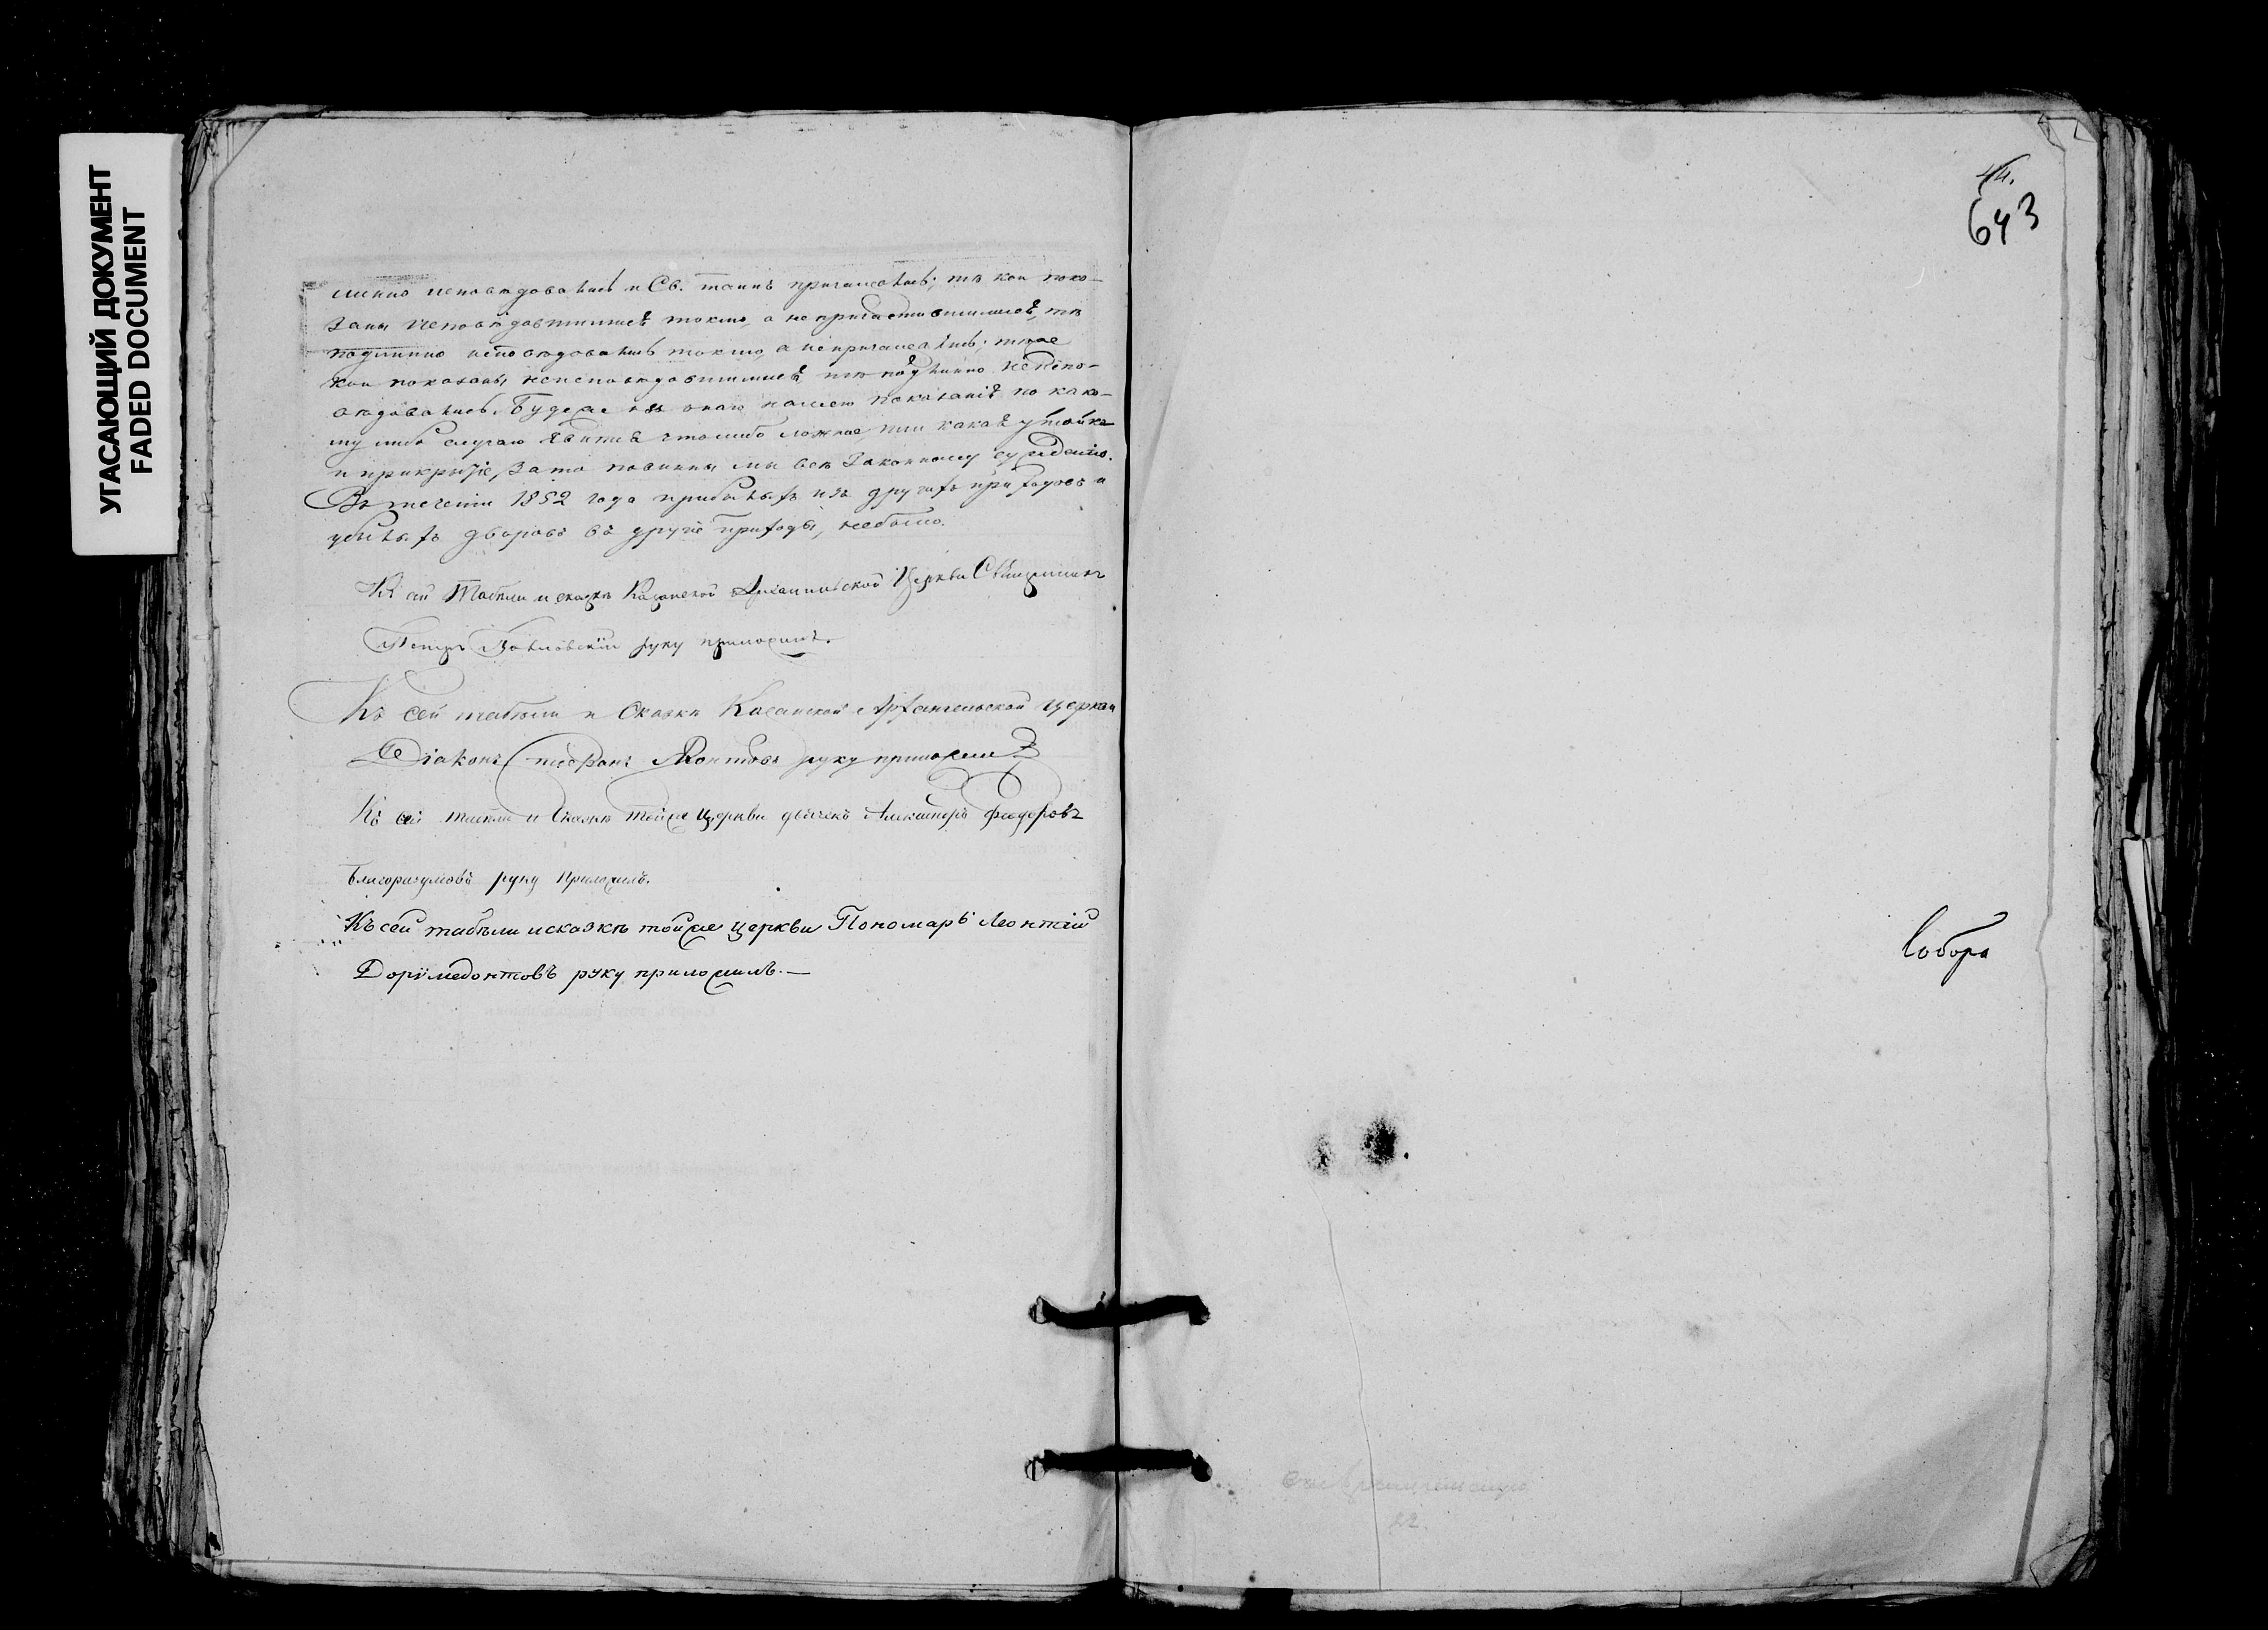 УГАСАЮЩИЙ ДОКУМЕНТ
FADED DOCUMENT
линно исповѣдовались и Св. таинъ причащались; тѣ кои пока-
заны исповѣдавшимися токмо, а не причастившимися, тѣ
подлинно исповѣдовались токмо, а непричащались; тѣже
кои показаны неисповѣдавшимися тѣ подлинно неиспо-
вѣдовались. Будеже въ оном нашемъ показаніи по како-
му либо случаю явится чтолибо ложное, или какая утайка
и прикрытіе, зато повинны мы всѣ законному сужденію.
Въ теченіи 1852 года прибылыхъ изъ другихъ приходовъ и
убылыхъ дворовъ въ другіе приходы, небыло.
Къ сей табели и сказкѣ Казанской Архангельской Церкви Священникъ
Петръ руку приложилъ.
Къ сей табели и Сказки Казанской Архангельской церкви
Діаконъ руку приложилъ
Къ сей табели и Сказкѣ тойже церкви дьячекъ Александръ Федоровъ
Благоразумовъ руку приложилъ.
Къ сей табѣли и сказкѣ тойже церкви Пономарь Леонтій
Доримедонтовъ руку приложилъ.—
643
Собора